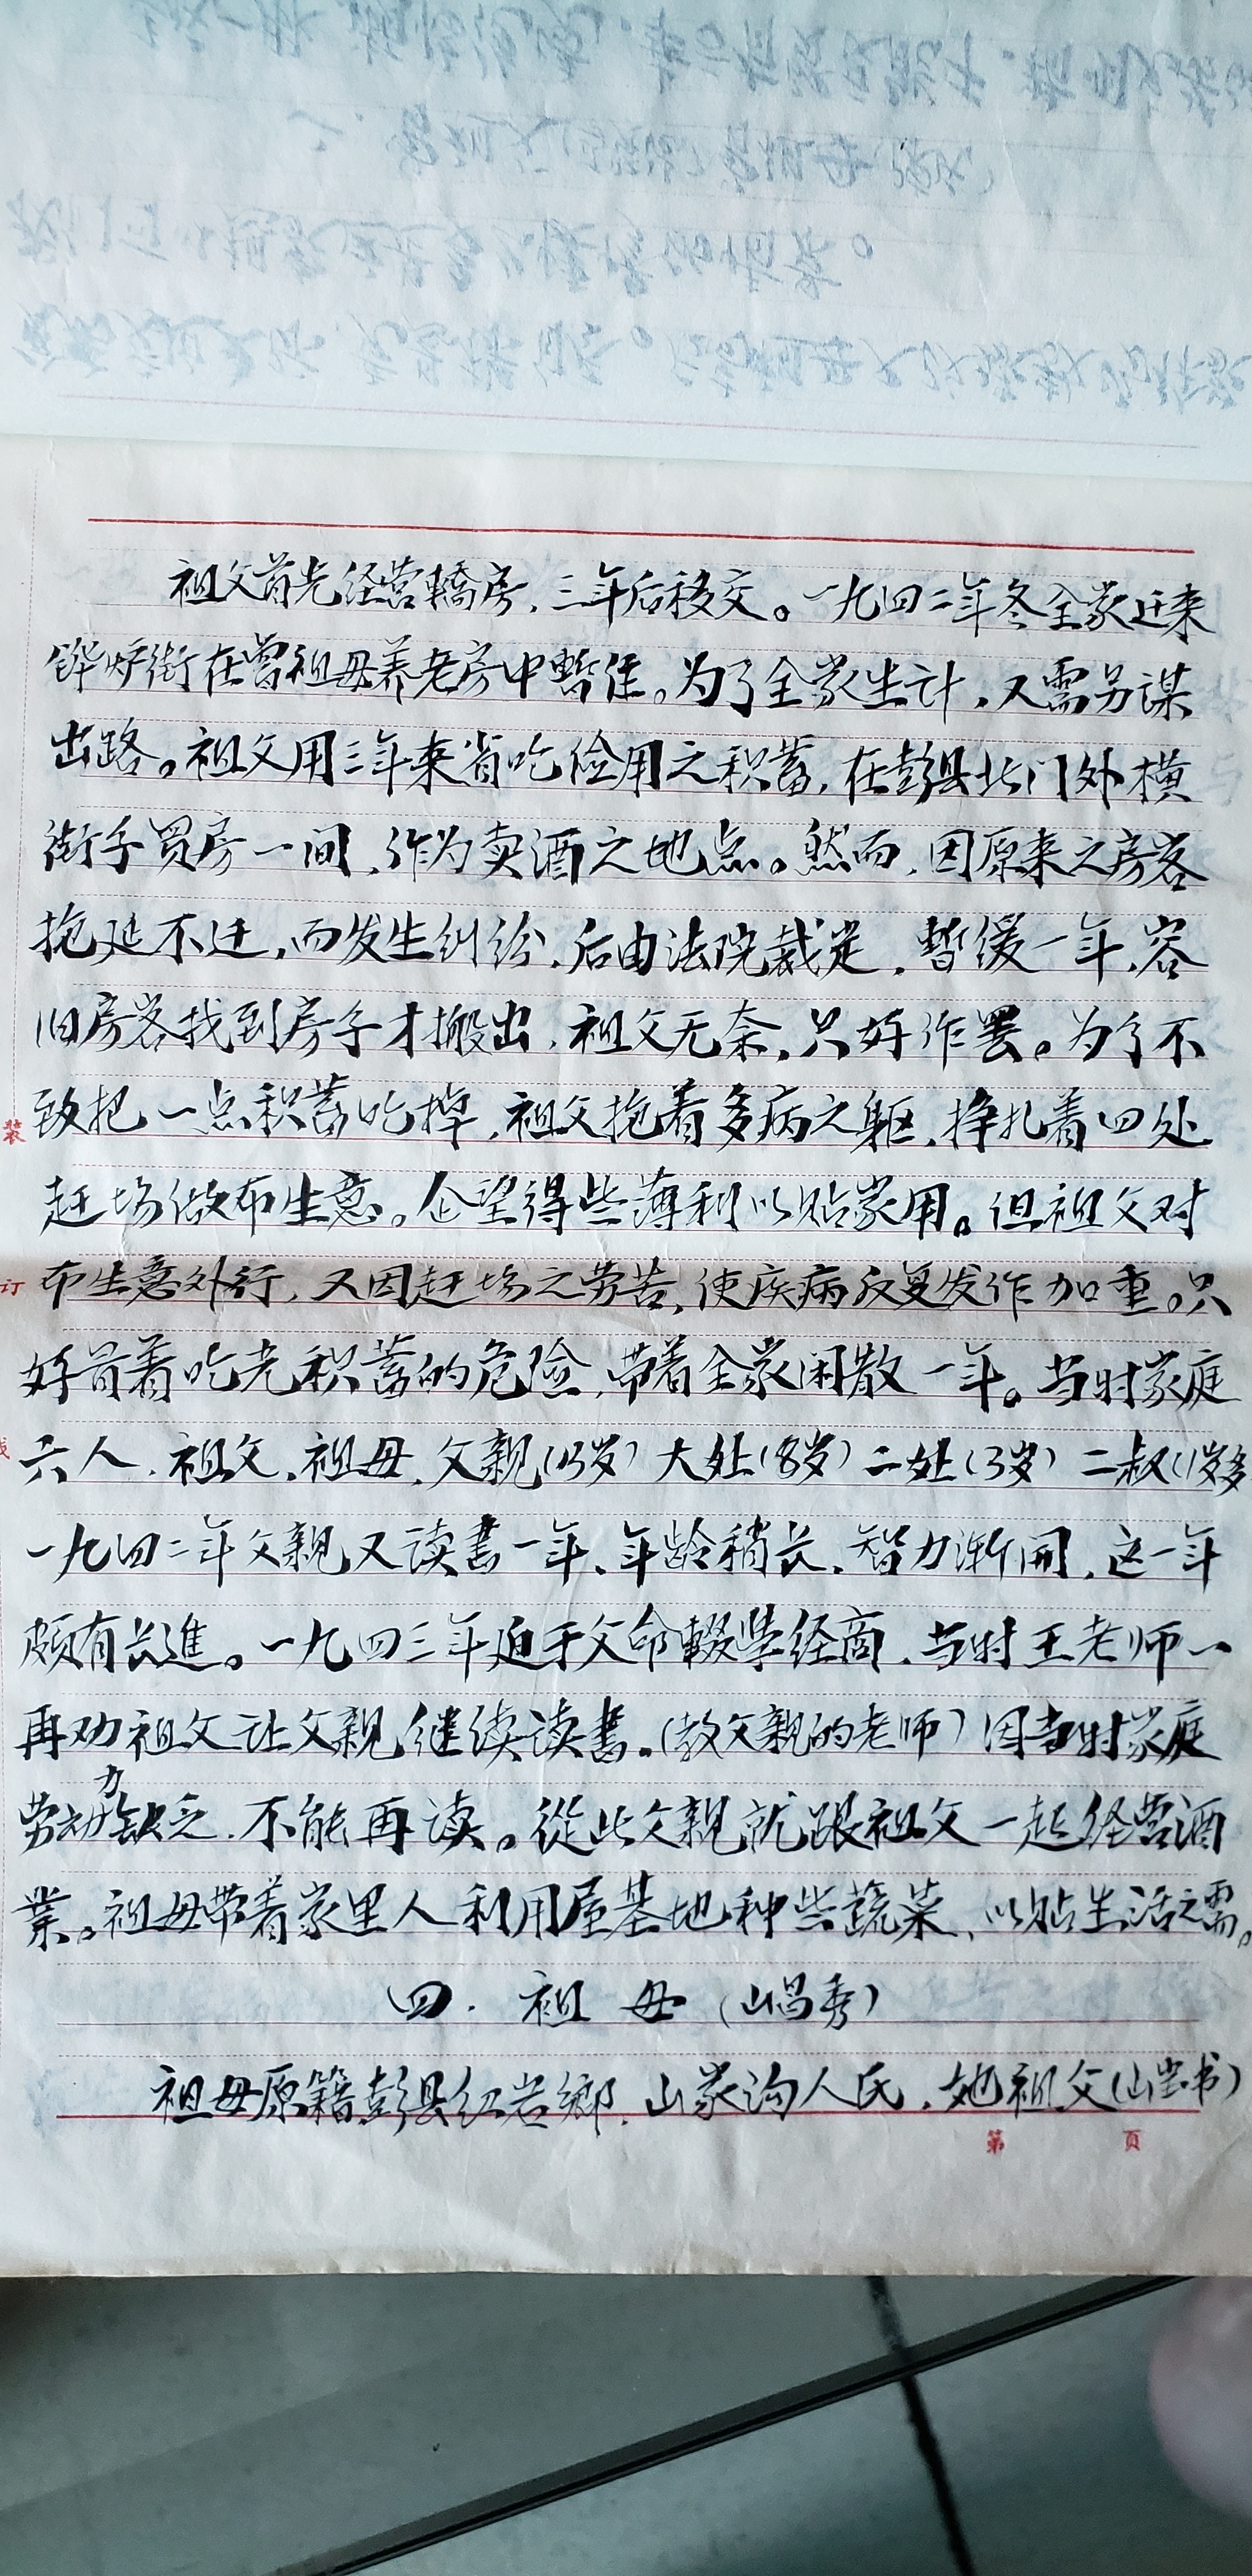 祖父首先经营轎房，三年后移交。一九四二年冬全家迁来
铧炉街在曾祖母养老房中暫住。为了全家生计，又需另谋
出路。祖父用三年来省吃俭用之积蓄，在彭县北门外横
街子買房一间，作为卖酒之地点。然而，因原来之房客
拖延不迁，而发生纠纷，后由法院裁定，暫缓一年，容
旧房客找到房子才搬出，祖父无奈，只好作罢。为了不
致把一点积蓄吃掉，祖父拖着多病之躯，挣扎着四处
赶场做布生意。企望得些薄利以贴家用。但祖父对
布生意外行，又因赶场之劳苦，使疾病反复发作加重。只
好冒着吃老积蓄的危险，带着全家闲散一年。当时家庭
六人，祖父、祖母、父親（13岁）大处（8岁）二处（3岁）二叔（1岁多
一九四二年父親又读書一年、年龄稍长，智力渐開，这一年
颇有长進。一九四三年迫于父命輟学经商，当时王老师一
再劝祖父让父親继续读書。（教父親的老师）因当时家庭
劳动力缺乏，不能再读。從此父親就跟祖父一起经营酒
業。祖母带着家里人利用屋基地种些蔬菜、以贴生活之需。
四．祖母（山昌秀）
祖母原籍彭县红岩鄉，山家沟人氏，她祖父（山 书）
装
订
第 页